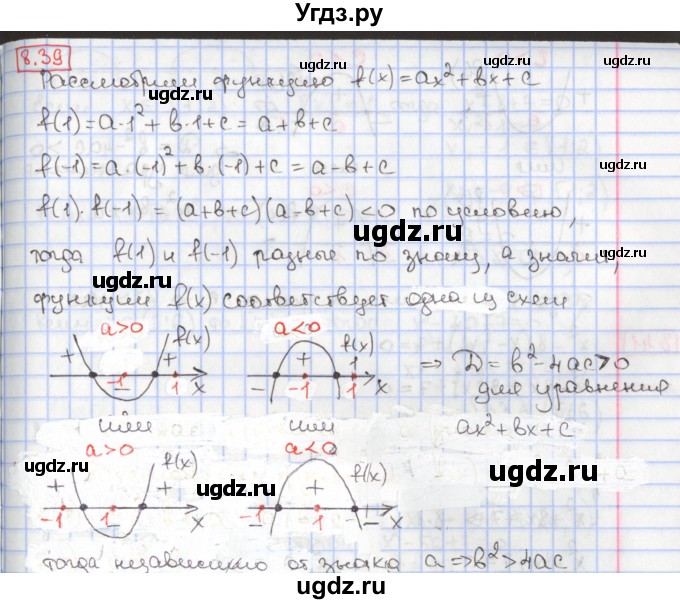 Угдз.ру
8.39
Рассмотрим функцию f(x)=ax²+вx+c
f(1)=a·1²+в·1+c=a+в+c
f(-1)=a·(-1)²+в·(-1)+c=a-в+c
f(1)·f(-1)=(a+в+c)(a-в+c)<0 по условию,
тогда f(1) и f(-1) разные по знаку, а значит,
функции f(x) соответствует одна из схем
a>0 f(x) + - -1 + 1 x
a<0 f(x) - -1 + 1 - x
⇒ D=в²-4ac>0
для уравнения
ax²+вx+c
или
или
a>0 f(x) + -1 - 1 + x
a<0 f(x) -1 - + 1 - x
тогда независимо от знака a ⇒ в²>4ac
ugdz.ru
ugdz.ru
ugdz.ru
ugdz.ru
ugdz.ru
ugdz.ru
ugdz.ru
ugdz.ru
ugdz.ru
ugdz.ru
ugdz.ru
ugdz.ru